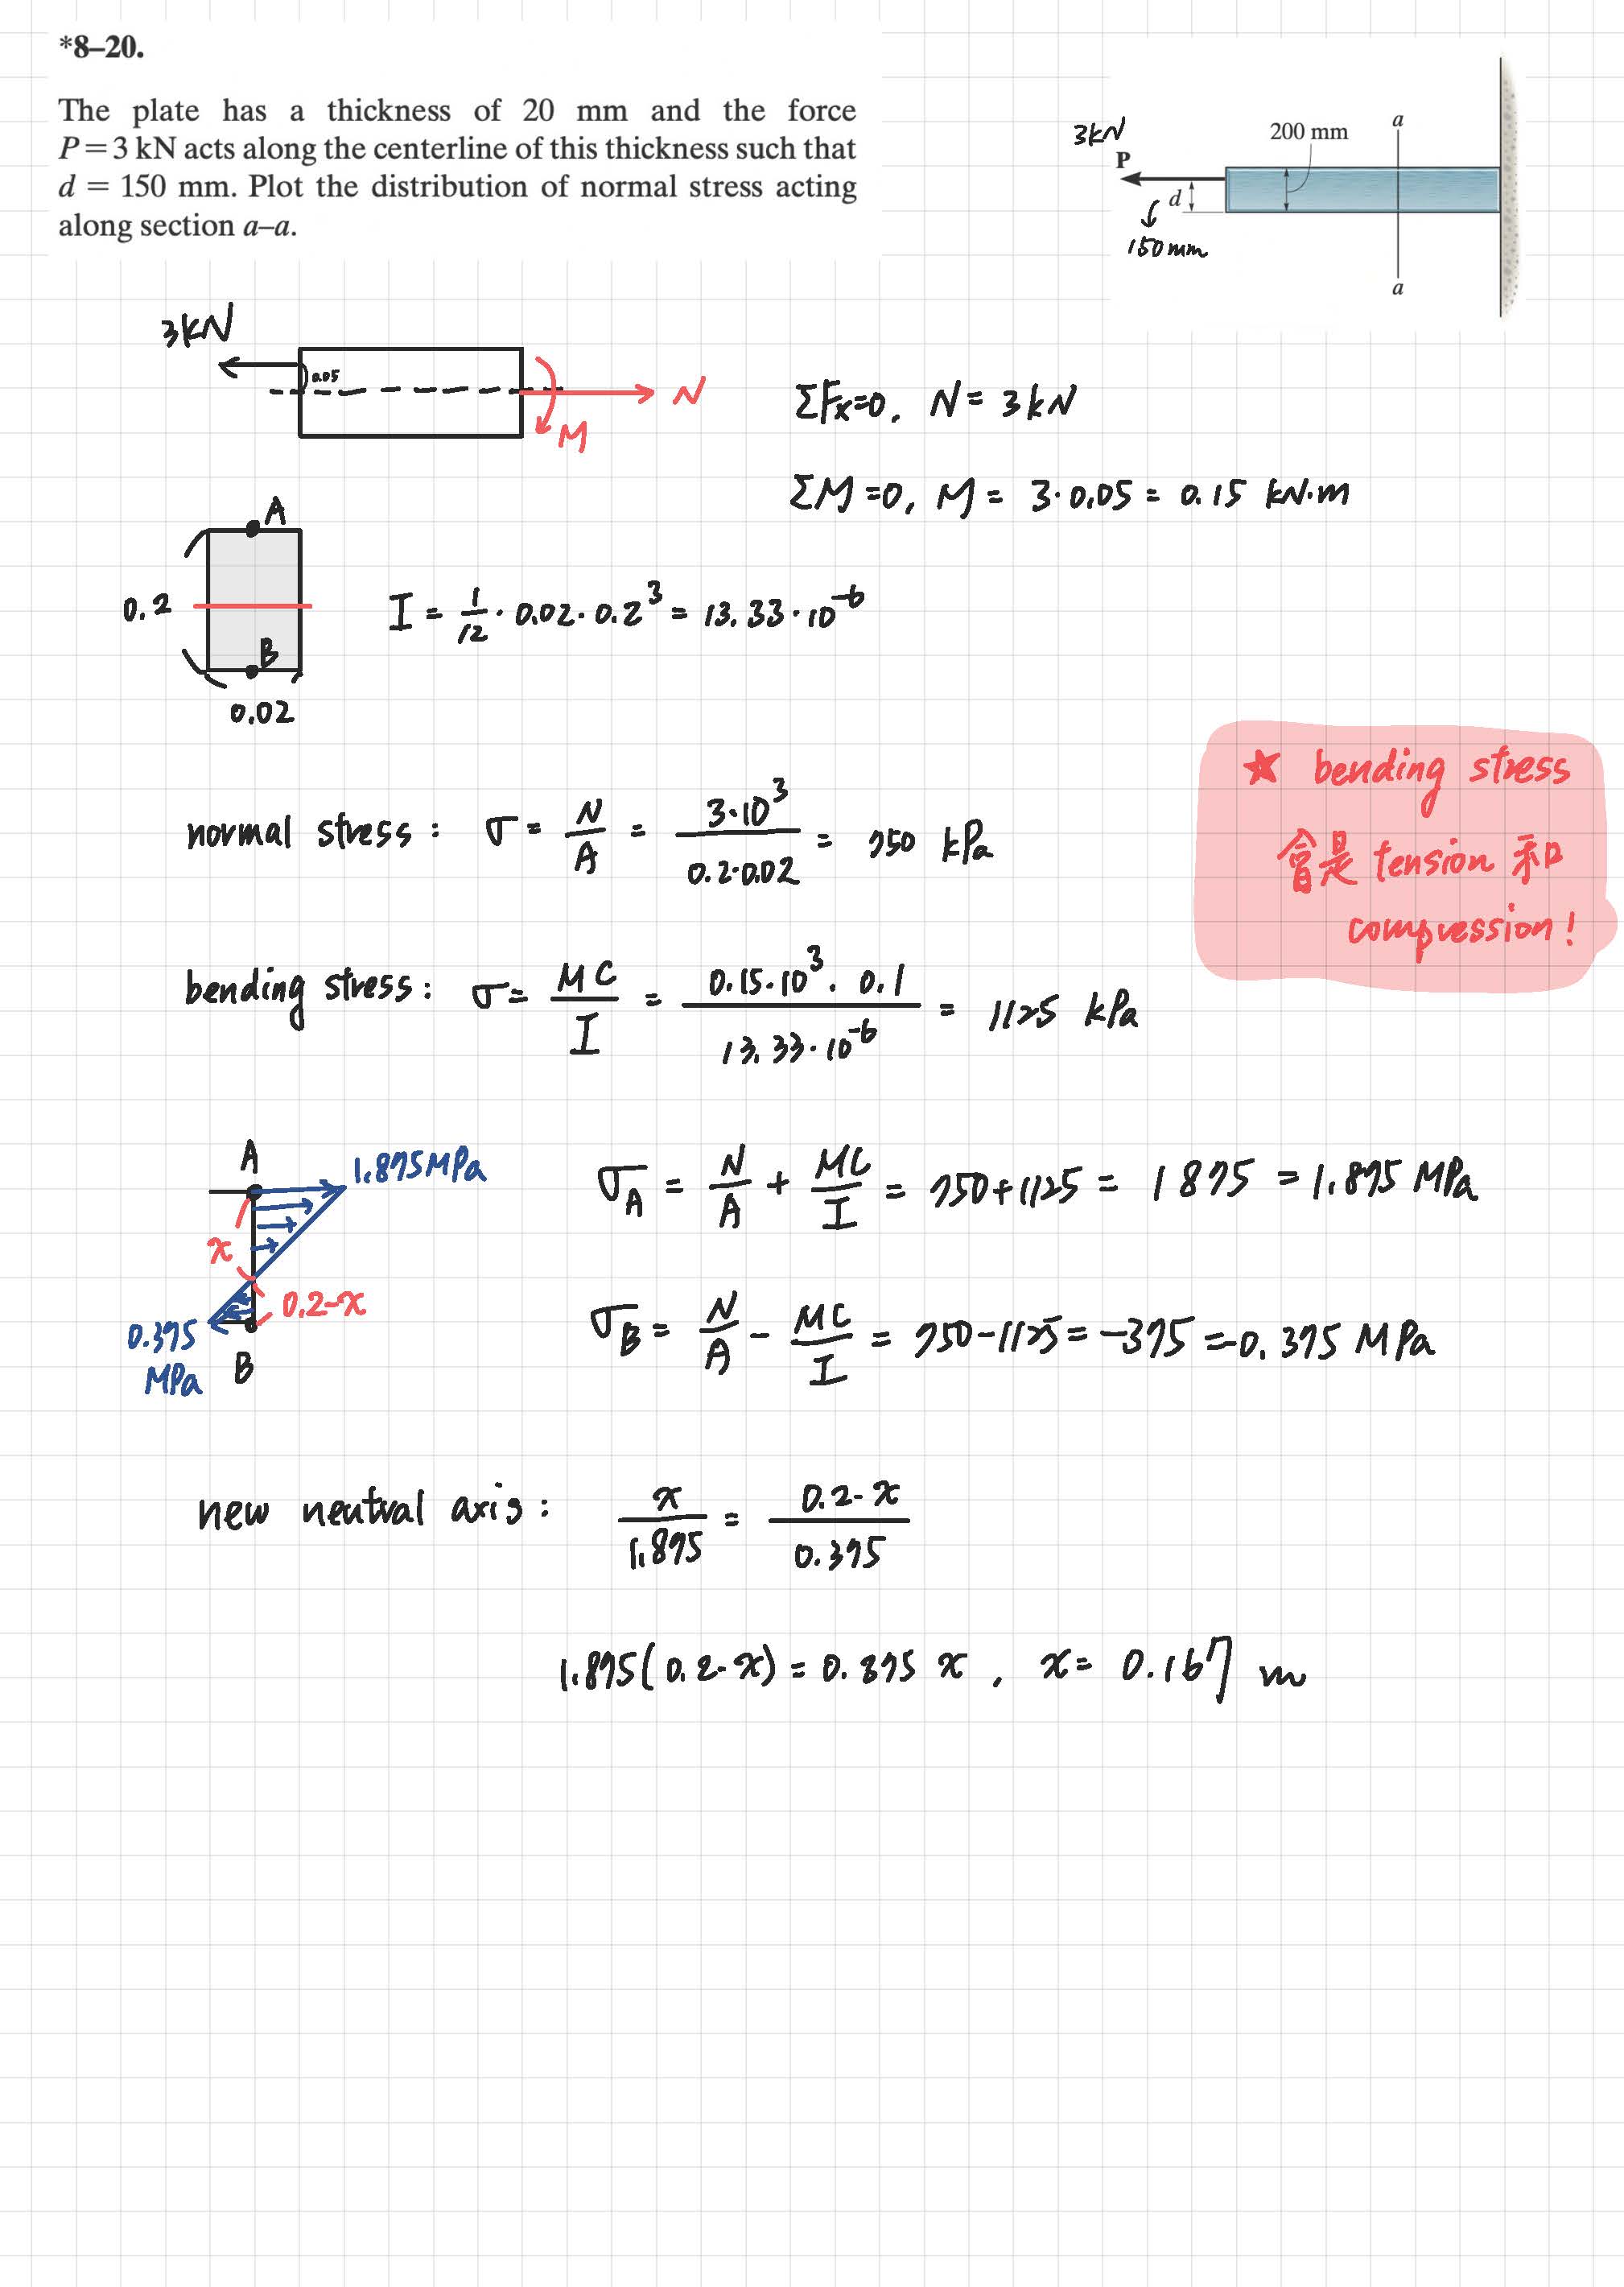 *8–20.
The plate has a thickness of 20 mm and the force
P = 3 kN acts along the centerline of this thickness such that
d = 150 mm. Plot the distribution of normal stress acting
along section a–a.
3kN
P
d
150mm
200 mm
a
a
3kN
0.05
N
M
ΣFx=0, N = 3 kN
ΣM=0, M = 3·0.05 = 0.15 kN·m
A
0.2
B
0.02
I = 1/12 · 0.02 · 0.2³ = 13.33·10⁻⁶
normal stress : σ = N/A = 3·10³/0.2·0.02 = 750 kPa
★ bending stress
會是 tension 和
compression!
bending stress : σ = MC/I = 0.15·10³·0.1/13.33·10⁻⁶ = 1125 kPa
A
1.875MPa
x
0.2-x
0.375
MPa
B
σA = N/A + MC/I = 750+1125 = 1875 = 1.875 MPa
σB = N/A - MC/I = 750-1125 = -375 = -0.375 MPa
new neutral axis : x/1.875 = 0.2-x/0.375
1.875(0.2-x) = 0.375 x , x = 0.167 m